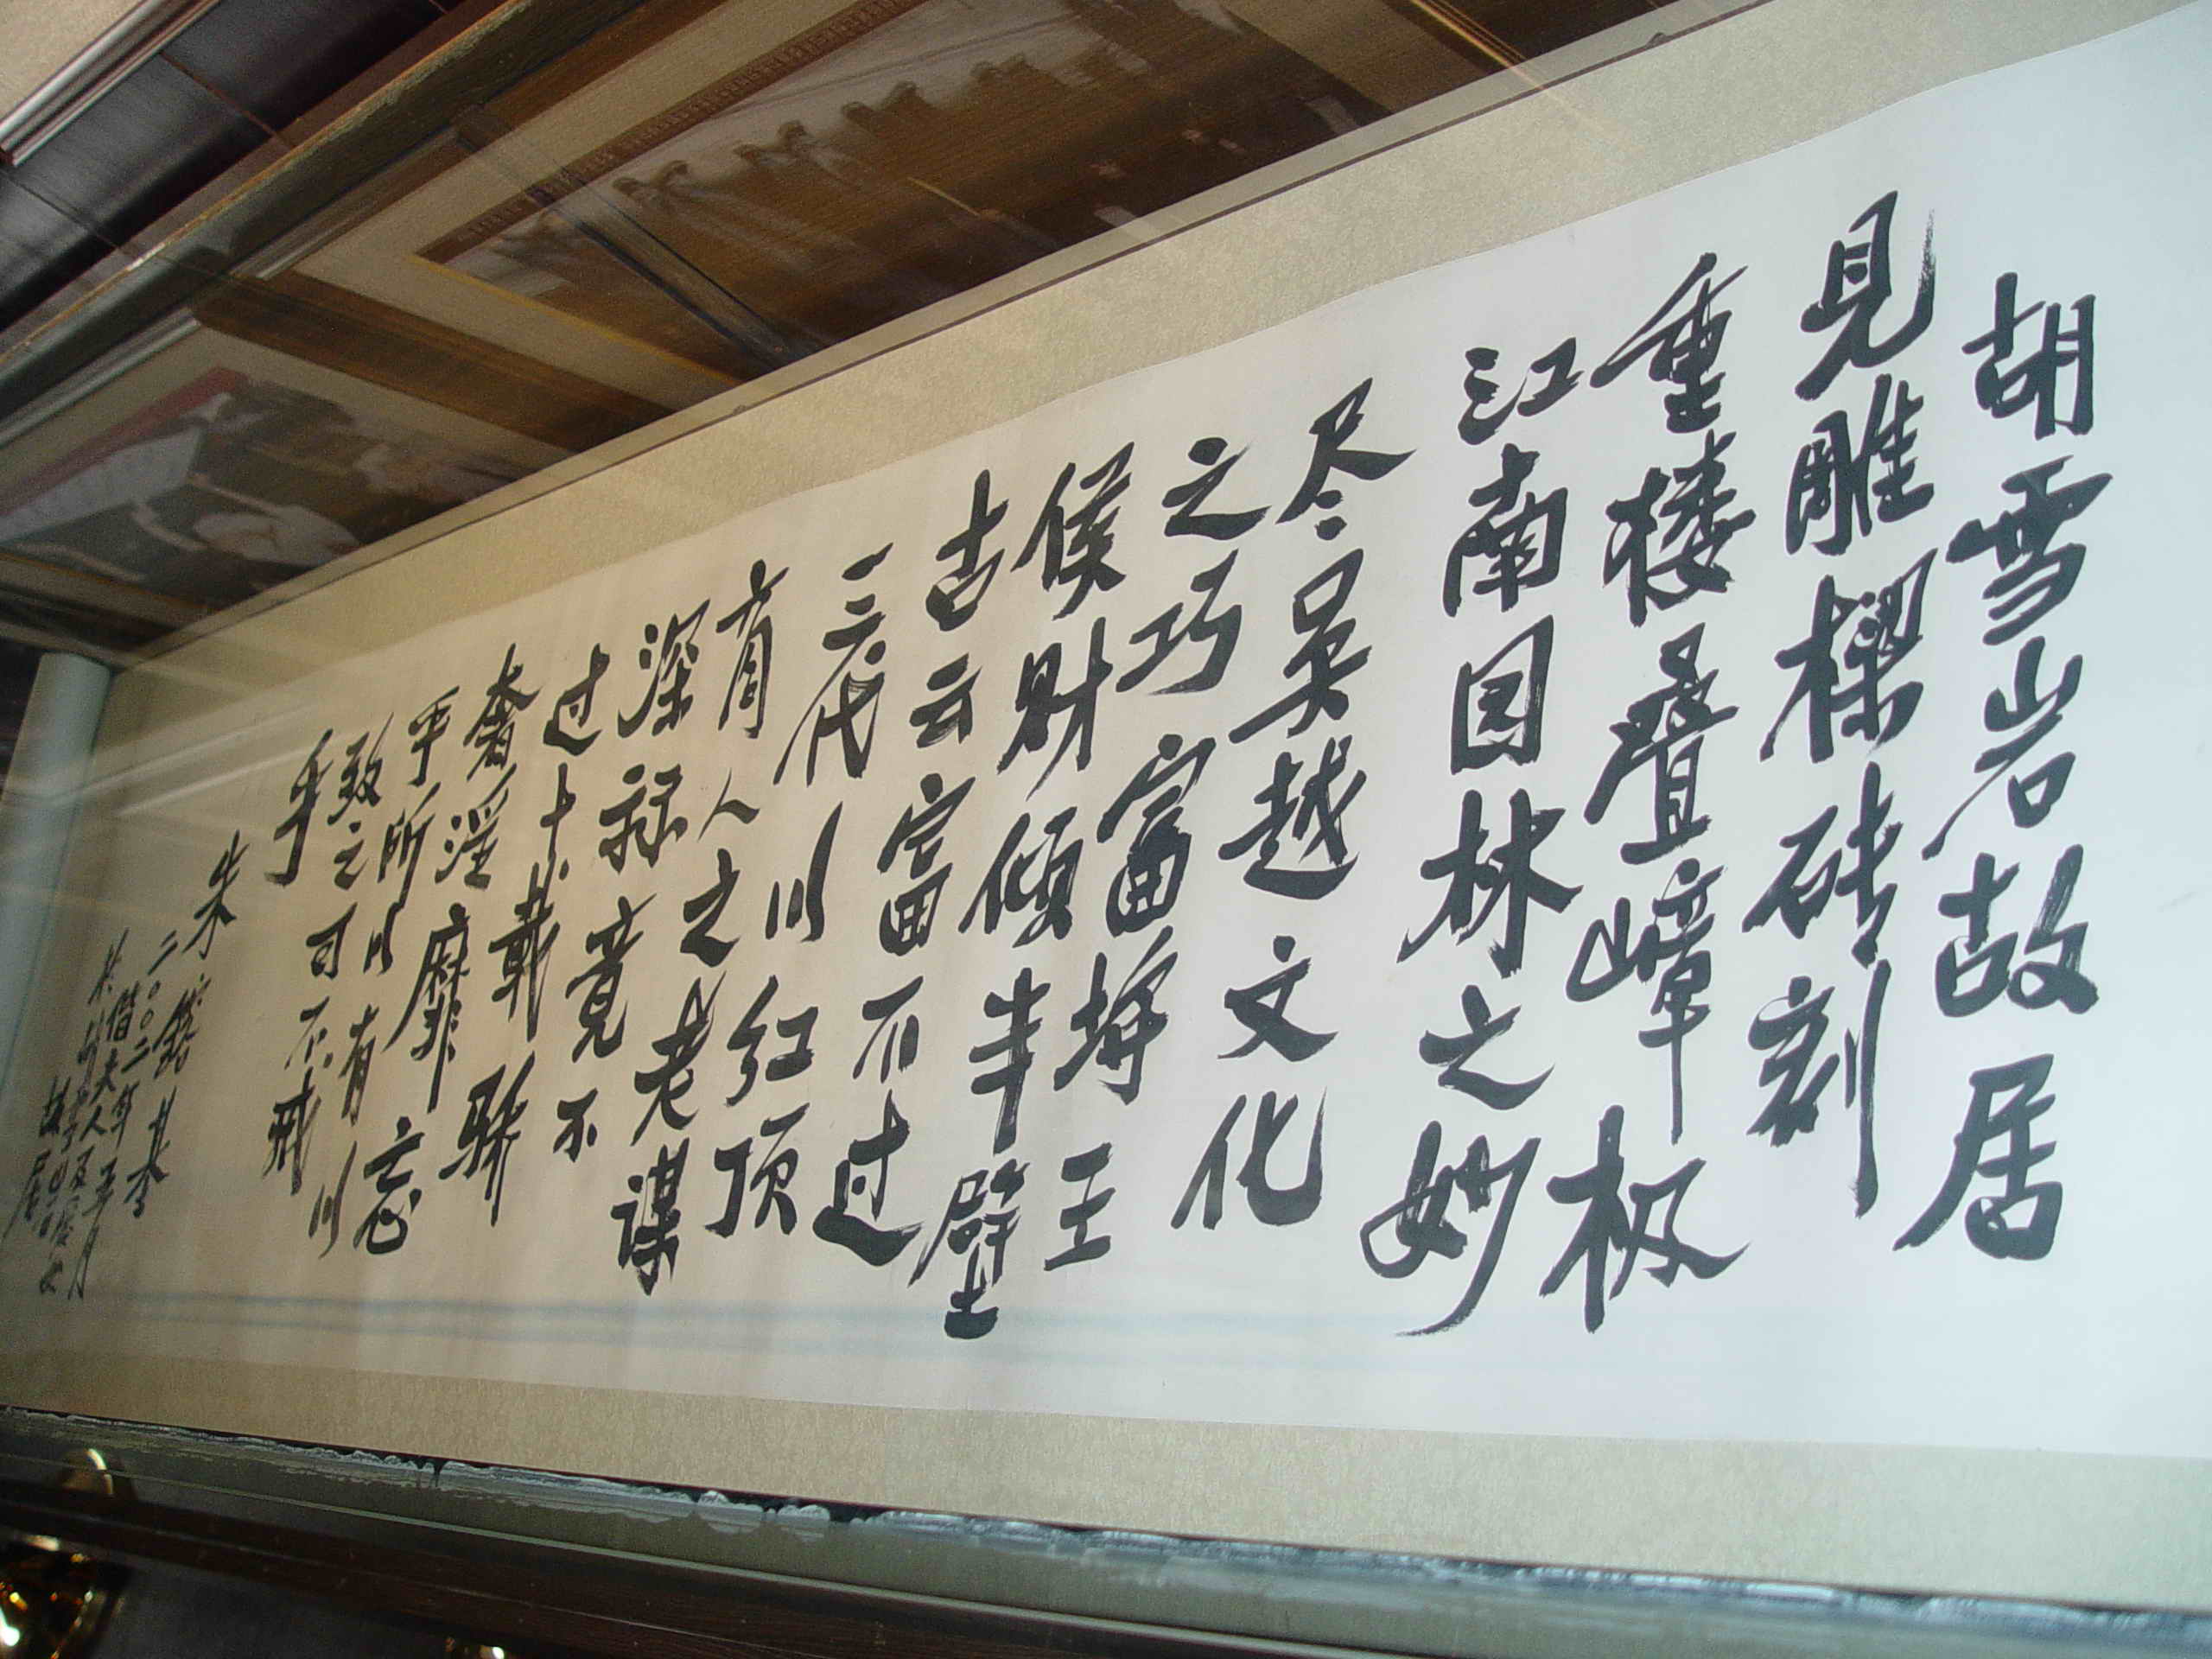 胡雪岩故居
见雕樑砖刻
重楼叠嶂极
江南园林之妙
尽吴越文化
之巧富埒王
侯财倾半壁
古云富不过
三代以红顶
商人之老谋
深算竟不
过十载骄
奢淫靡忘
乎所以有以
致之可不戒
乎
朱镕基
二〇〇二年五月
借夫人
居